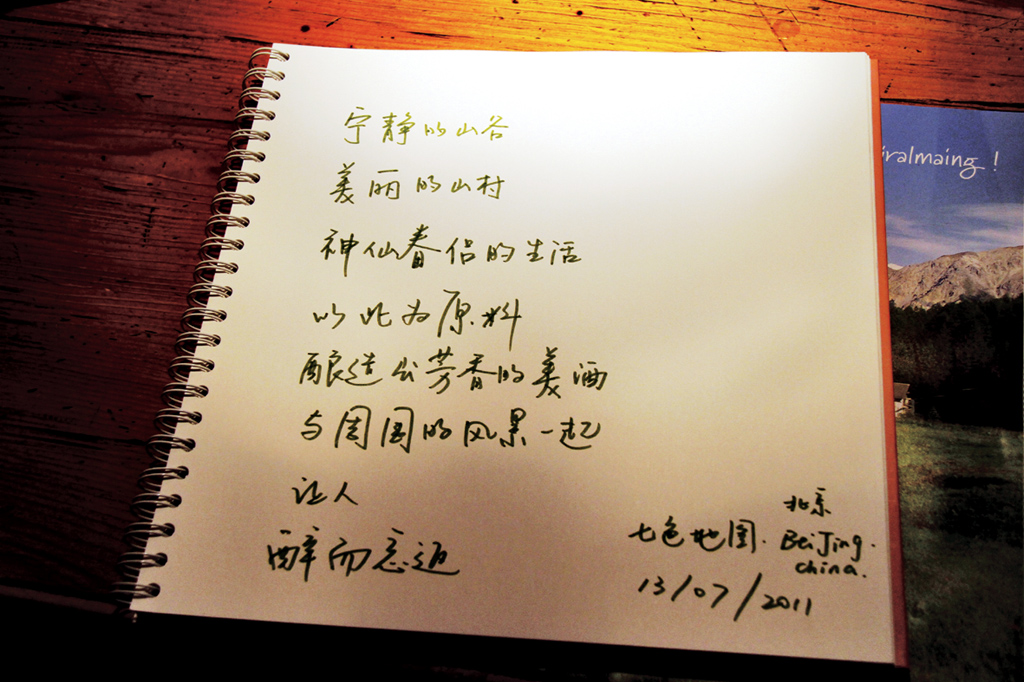 宁静的山谷
美丽的山村
神仙眷侣的生活
以此为原料
酿造出芳香的美酒
与周围的风景一起
让人
醉而忘返
北京
七色地图. BeiJing.
china.
13/07/2011
iralmaing !